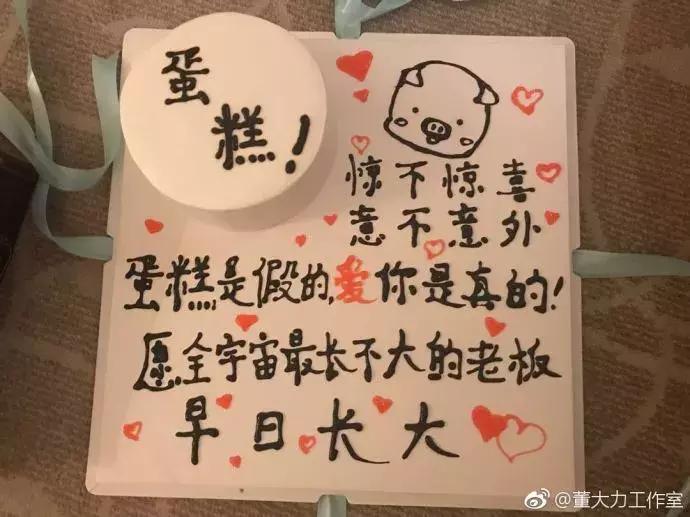 蛋
糕！
惊不惊喜
意不意外
蛋糕是假的,爱你是真的！
愿全宇宙最长不大的老板
早日长大
@董大力工作室